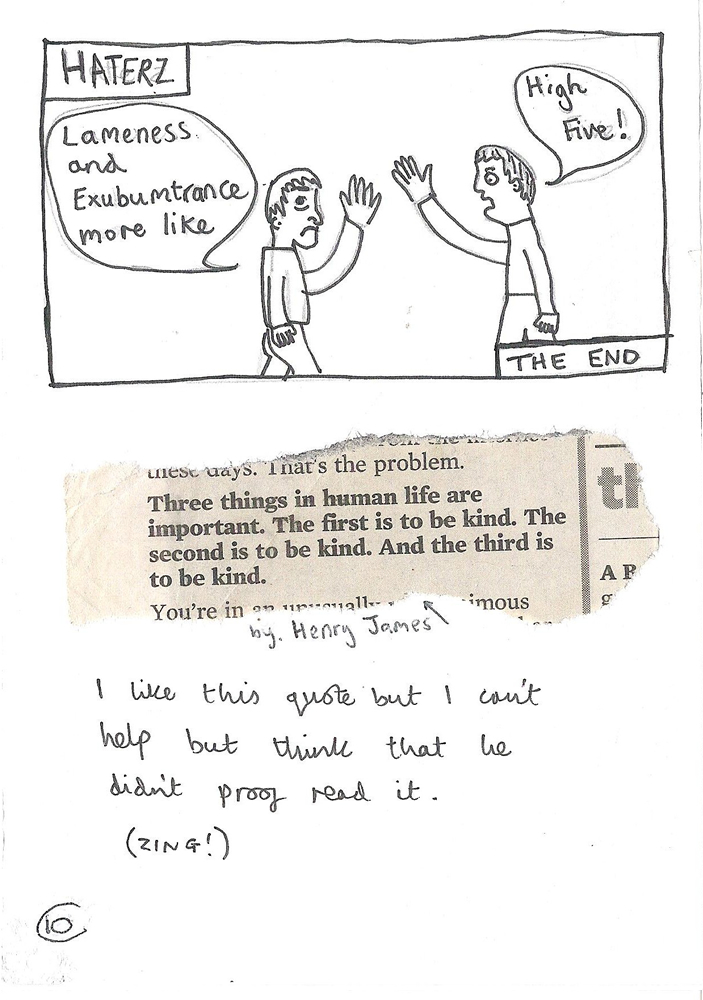 HATERZ
Lameness
and
Exubumtrance
more like
High
Five!
THE END
these days. That's the problem.
Three things in human life are
important. The first is to be kind. The
second is to be kind. And the third is
to be kind.
You're in an unusually
by. Henry James
I like this quote but I can't
help but think that he
didn't proof read it.
(ZING!)
10